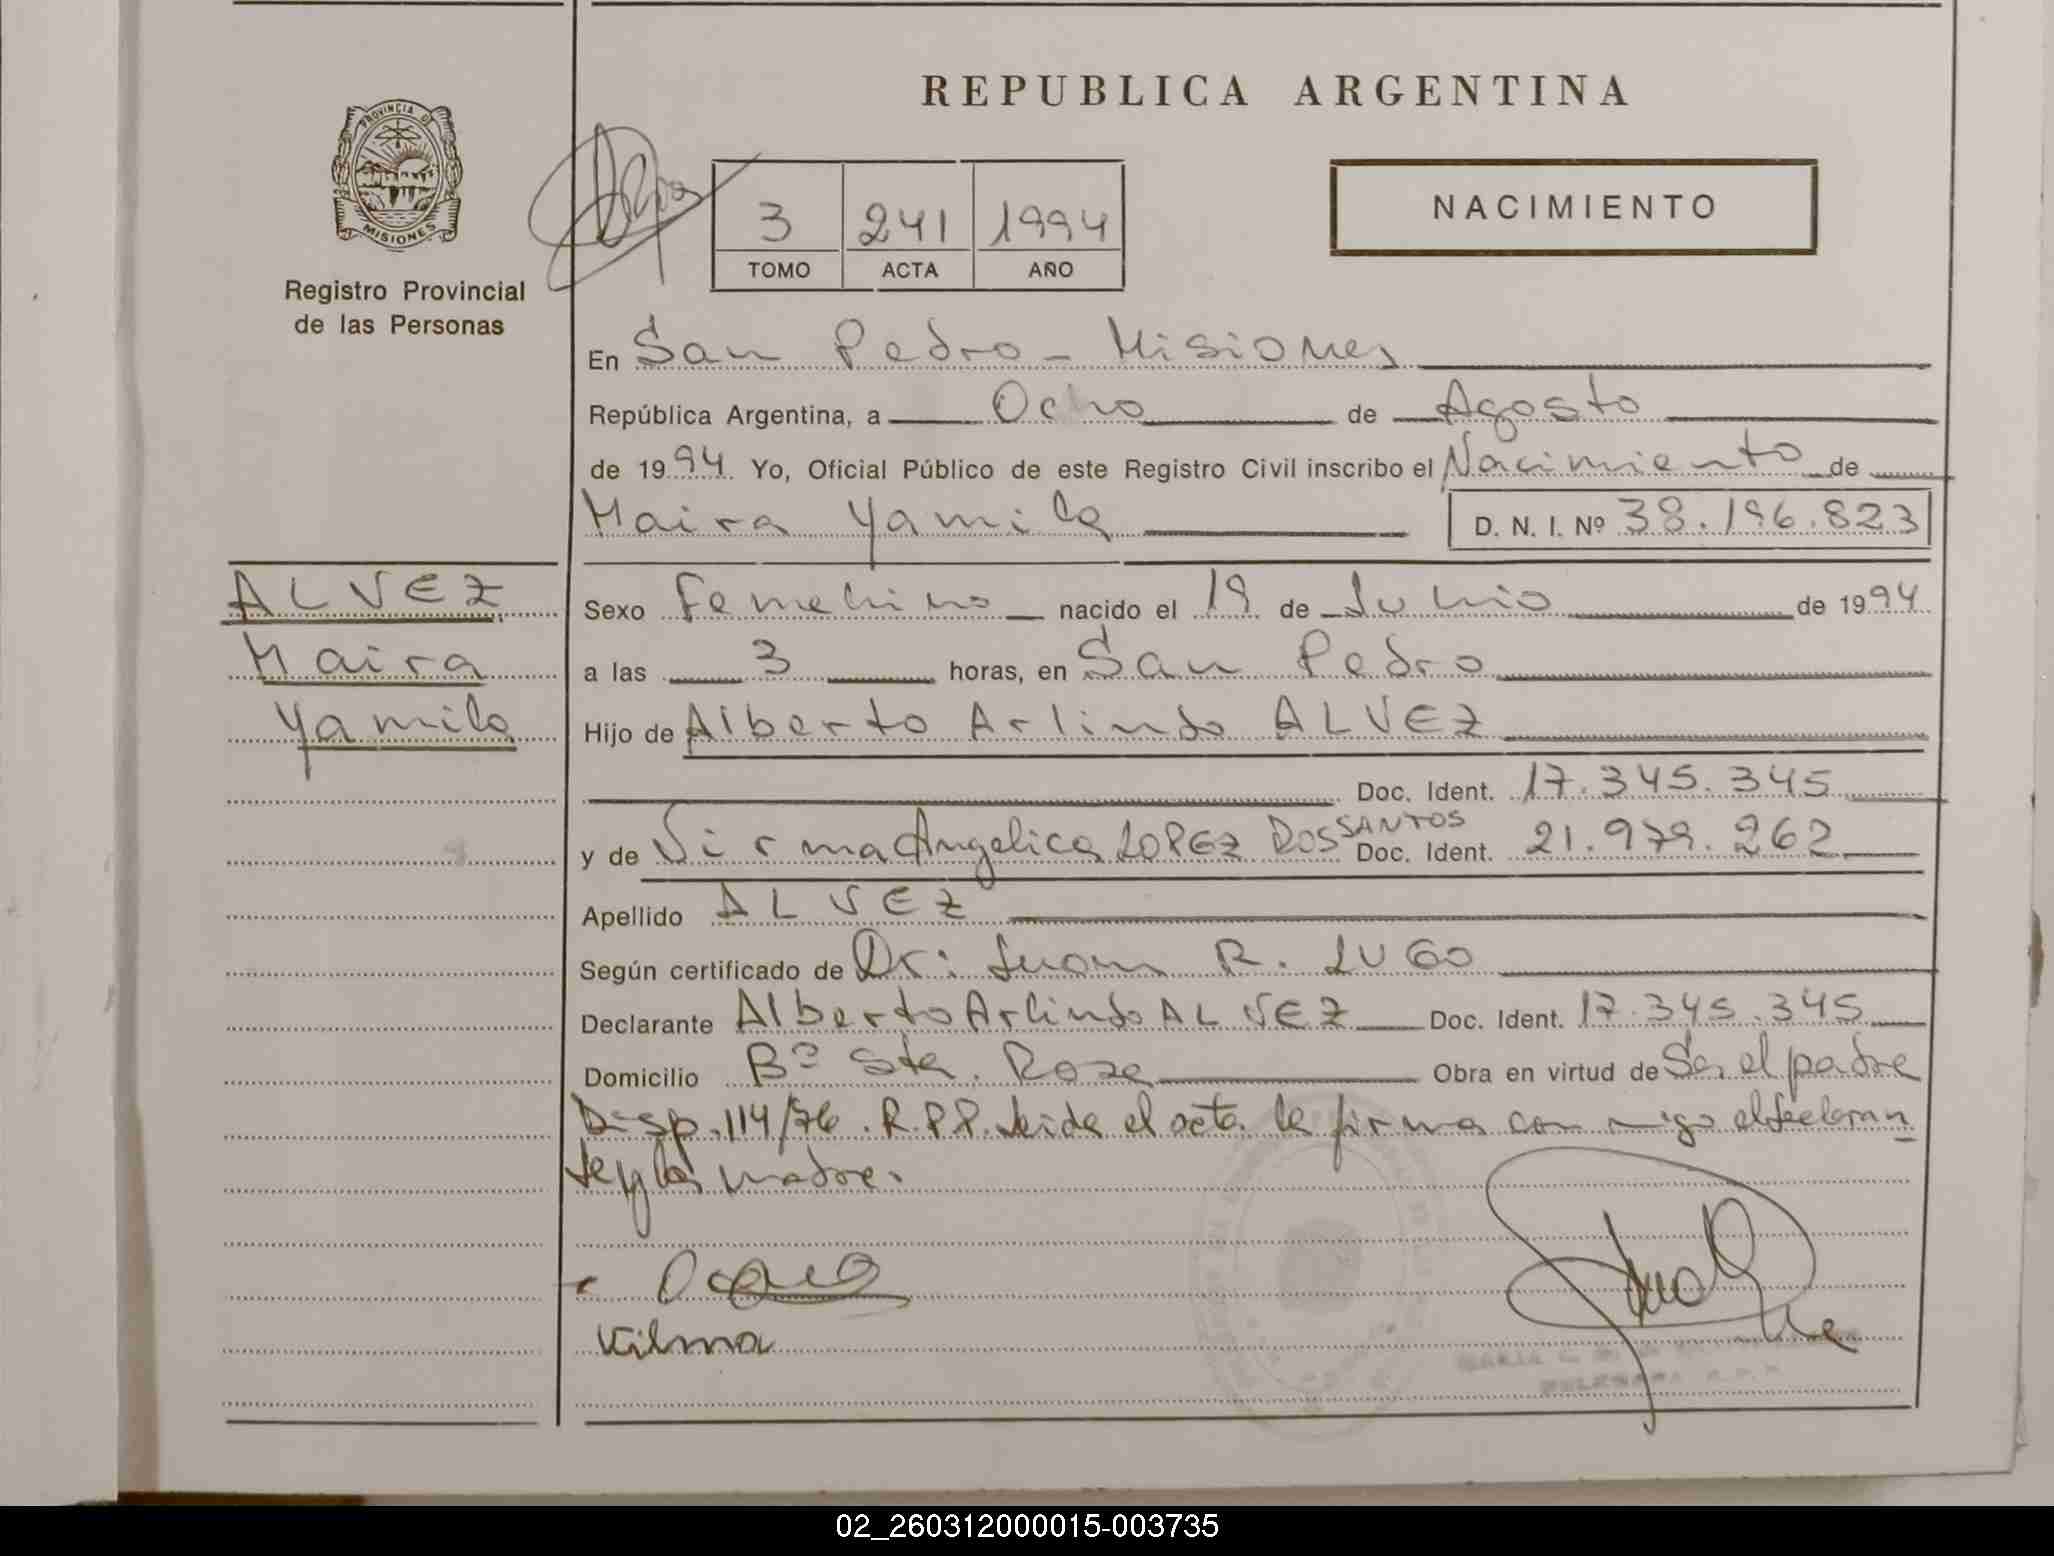 REPUBLICA ARGENTINA
PROVINCIA DE
MISIONES
Registro Provincial
de las Personas
3 241 1994
TOMO ACTA AÑO
NACIMIENTO
En San Pedro - Misiones
República Argentina, a Ocho de Agosto
de 1994 Yo, Oficial Público de este Registro Civil inscribo el Nacimiento de
Maira Yamila D. N. I. Nº 38.196.823
ALVEZ
Maira
Yamila
Sexo Femenino nacido el 19 de Junio de 1994
a las 3 horas, en San Pedro
Hijo de Alberto Arlindo ALVEZ
Doc. Ident. 17.345.345
y de Angelica LOPEZ DOS SANTOS Doc. Ident. 21.979.262
Apellido ALVEZ
Según certificado de Dr: Juan R. LUGO
Declarante Alberto Arlindo ALVEZ Doc. Ident. 17.345.345
Domicilio Bº Sta. Rosa Obra en virtud de Ser el padre
Disp. 114/76. R.P.P. Leida el acta la firma con migo el declaran
te y la madre.
Vilma